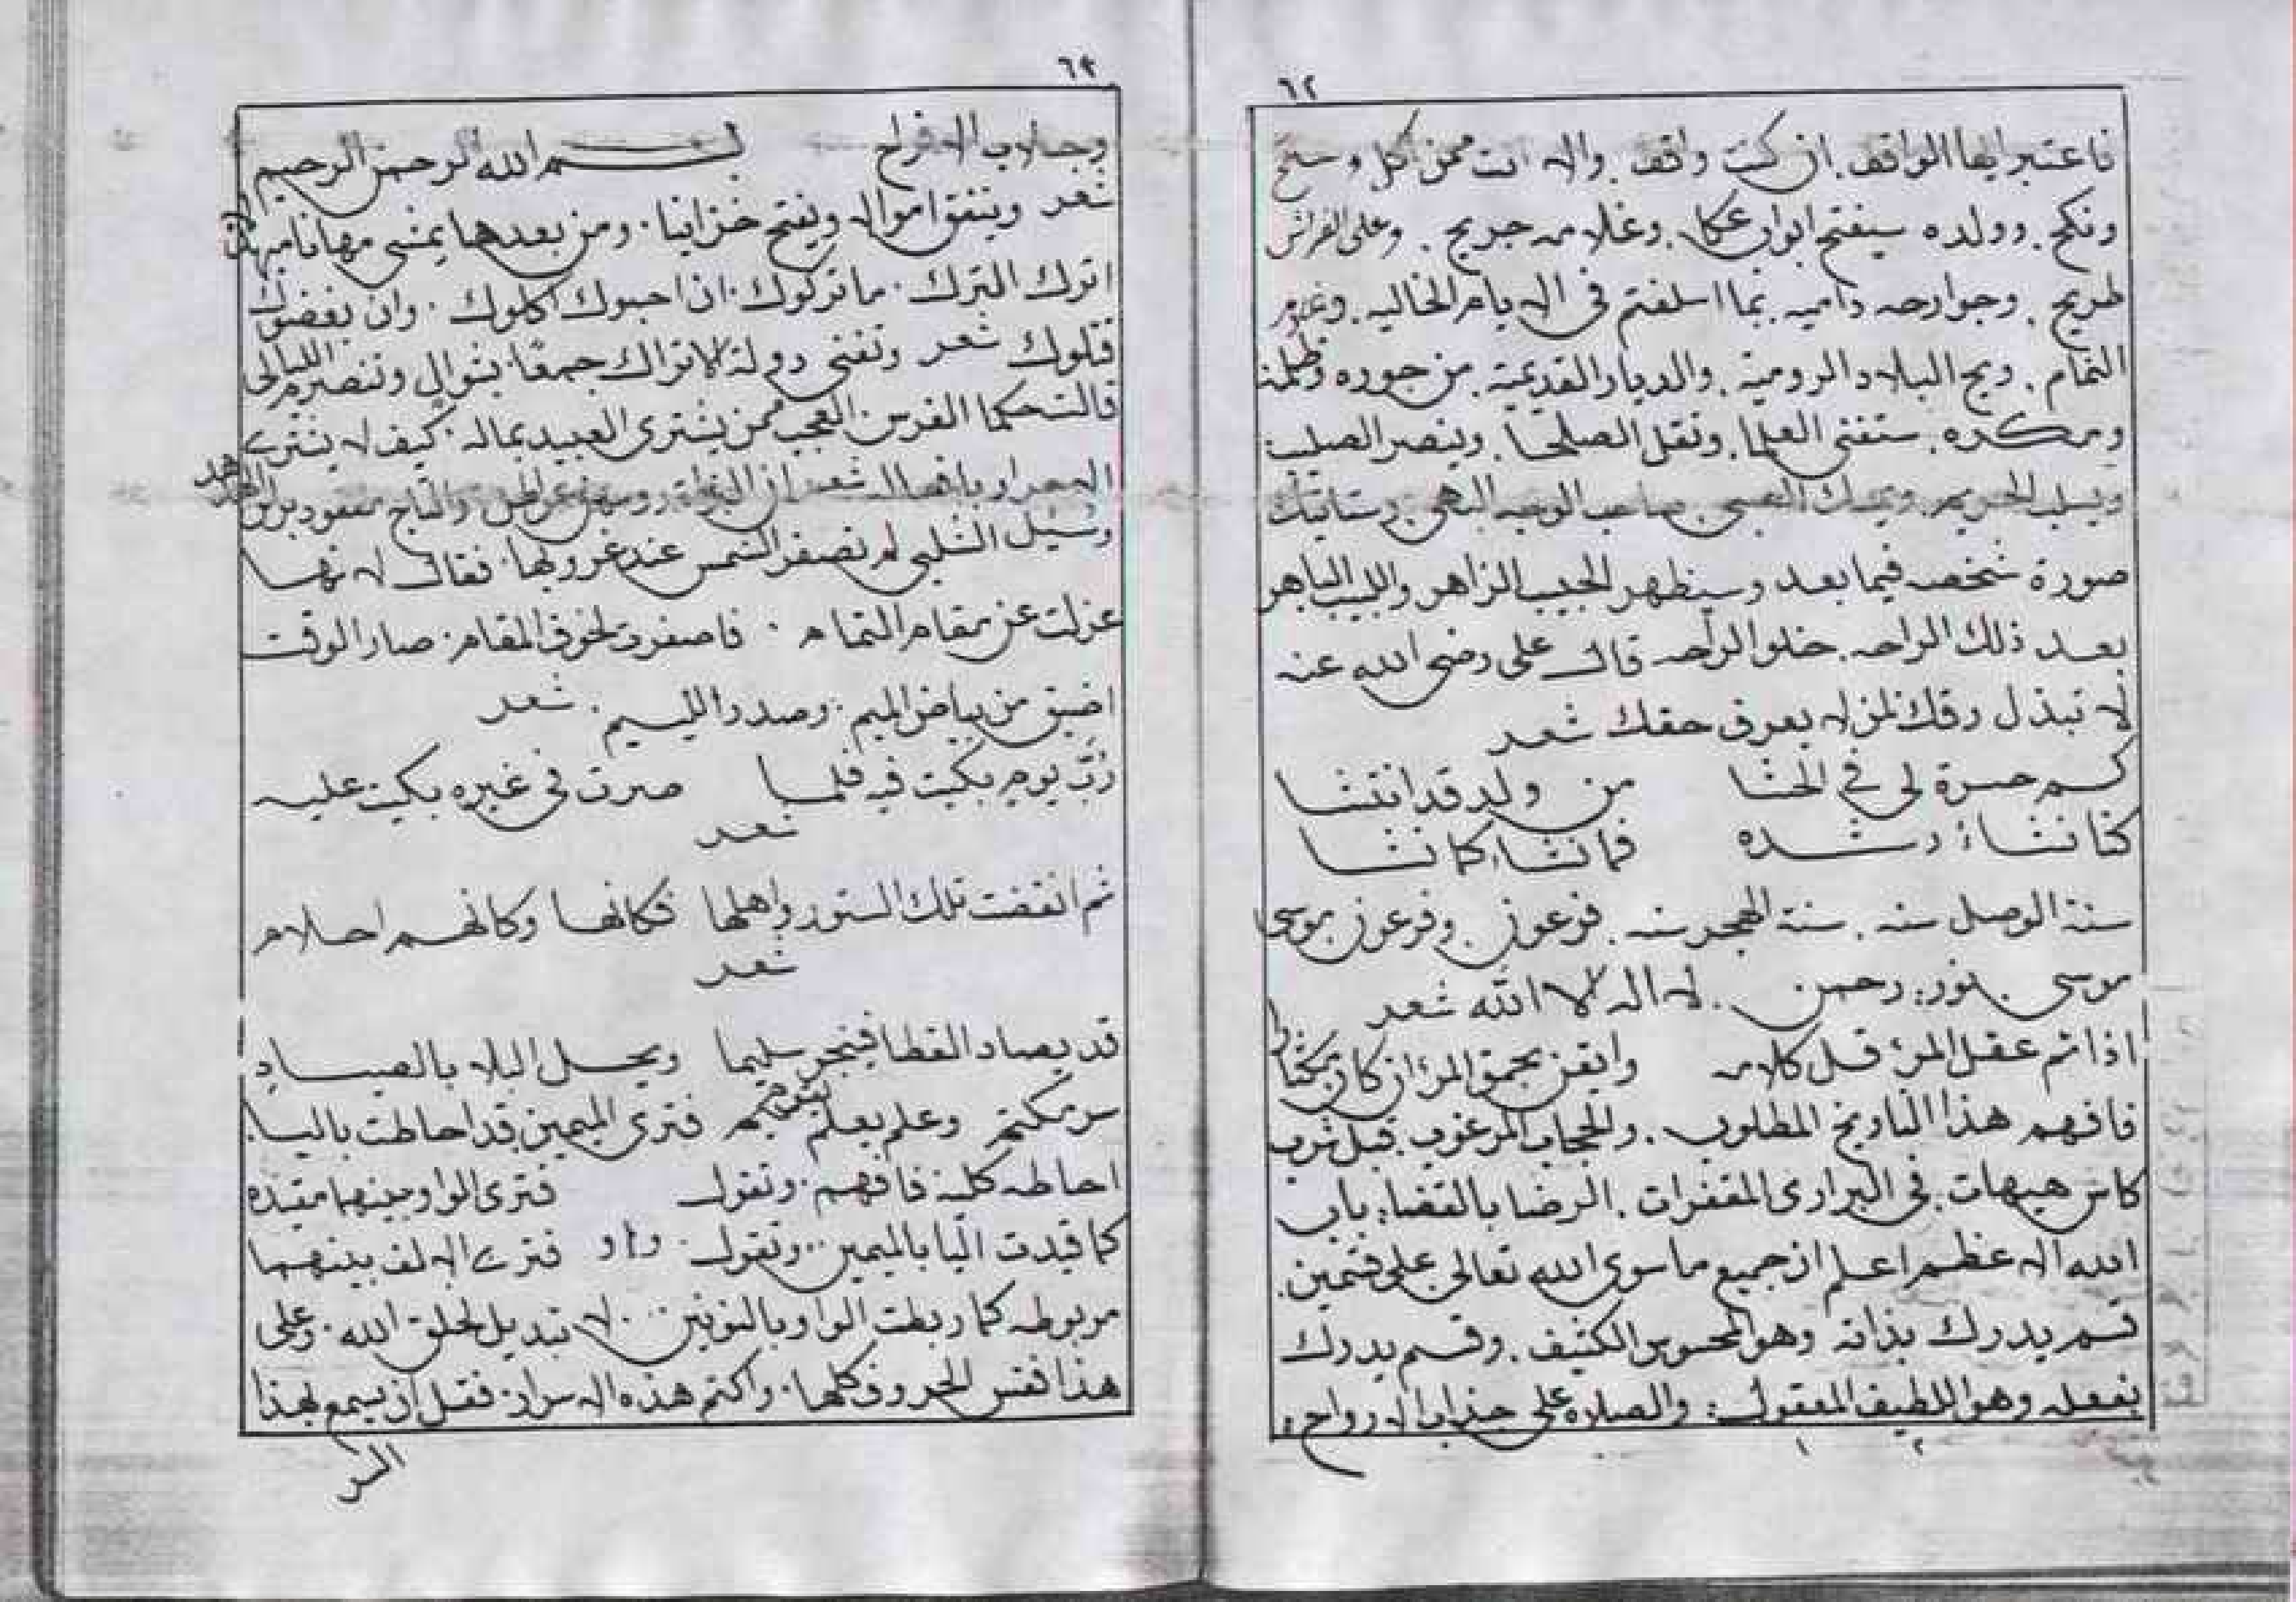 ٦٢
فاعتبر ايها الواقف ان كنت واقف والا انت ممن اكل وسبح
ونكح وولده سيفتح ابواب عكا وغلامه جريح وعلى الفراش
طريح وجوارحه داميه بما اسلفتم في الايام الخاليه
التمام ويح البلاد الروميه والديار القديمة من جوره وظلمه
ومكره ستفنى العلما وتقل الصلحا وينصر الصليب
ويسلب الحريم صاحب الوجه البهى وستاتيك
صورة شخصه فيما بعد وسيظهر الحبيب الزاهر واللبيب الباهر
بعد ذلك الراحه خلو الراحه قال على رضى الله عنه
لا تبذل رقك لمن لا يعرف حقك شعر
كم حسرة لى في الحشا من ولد قد انتشا
كنا نشاء رشده فما نشا كما نشا
سنة الوصل سنه سنة الهجر سنه فرعون وفرعون موسى
موسى نور رحمن لا اله الا الله شعر
اذا تم عقل المرء قل كلامه وايقن بحمق المرء ان كان مكثارا
فافهم هذا التاريخ المطلوب والحجاب المرغوب قبل شرب
كاس هيهات في البرارى المقفرات الرضا بالقضا باب
الله الاعظم اعلم ان جميع ما سوى الله تعالى على قسمين
قسم يدرك بذاته وهو المحسوس الكثيف وقسم يدرك
بفعله وهو اللطيف المعقول والصلاه على جذاب الارواح
٢ ١
٦٣
وجلاب الافراح بسم الله الرحمن الرحيم
شعر وينفق امواله ويفتح خزاينا ومن بعدها يمشى مهانا
اترك الترك ما تركوك ان احبوك اكلوك وان بغضوك
قتلوك شعر وتفنى دولة الاتراك جمعا بتوالى وتنصرم الليالى
قالت حكما الفرس العجب ممن يشترى العبيد بماله كيف لا يشترى
شعر والتاج معقود براس الهدهد
وسئل الشلبى لم تصفر الشمس عند غروبها فقال لانها
عزلت عن مقام التمام فاصفرت لخوف المقام صار الوقت
اضيق من بياض الميم وصدر اللئيم شعر
رب يوم بكيت فيه فلما صرت في غيره بكيت عليه
شعر
ثم انقضت تلك السنور واهلها فكانها وكانهم احلام
شعر
قد يصاد القطا فينجو سليما ويحل البلا بالصياد
سر مكتم وعلم يعلم فترى الميمين قد احاطت باليا
احاطه كلية فافهم وتقول فترى الواو بينهما مقيده
كما قيدت اليا بالميمين وتقول واو فترى الالف بينهما
مربوطه كما ربطت الواو بالنونين لا تبديل لخلق الله وعلى
هذا فقس الحروف كلها واكتم هذه الاسرار فقل ان يسمع بهذا
السر